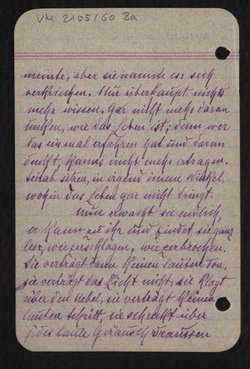 VM 2105/60 Ba
meinte, aber sie nannte es: sich
verkriechen. Nur überhaupt nichts
mehr wissen. Gar nicht mehr daran
denken, wie das Leben ist; denn wer
das einmal erfahren hat und daran
denkt, kann's nicht mehr ertragen.
sitzen, in irgend einem Winkel,
wohin das Leben gar nicht dringt.
erwacht sie endlich,
er kommt zu ihr und findet sie ganz
leer, wie zerschlagen, wie zerbrochen.
Sie verträgt dann keinen lauten Ton,
sie verträgt das Licht nicht, sie klagt
über den Nebel, sie verträgt keinen
lauten Schritt, sie erschrickt über
jedes laute Geräusch draussen